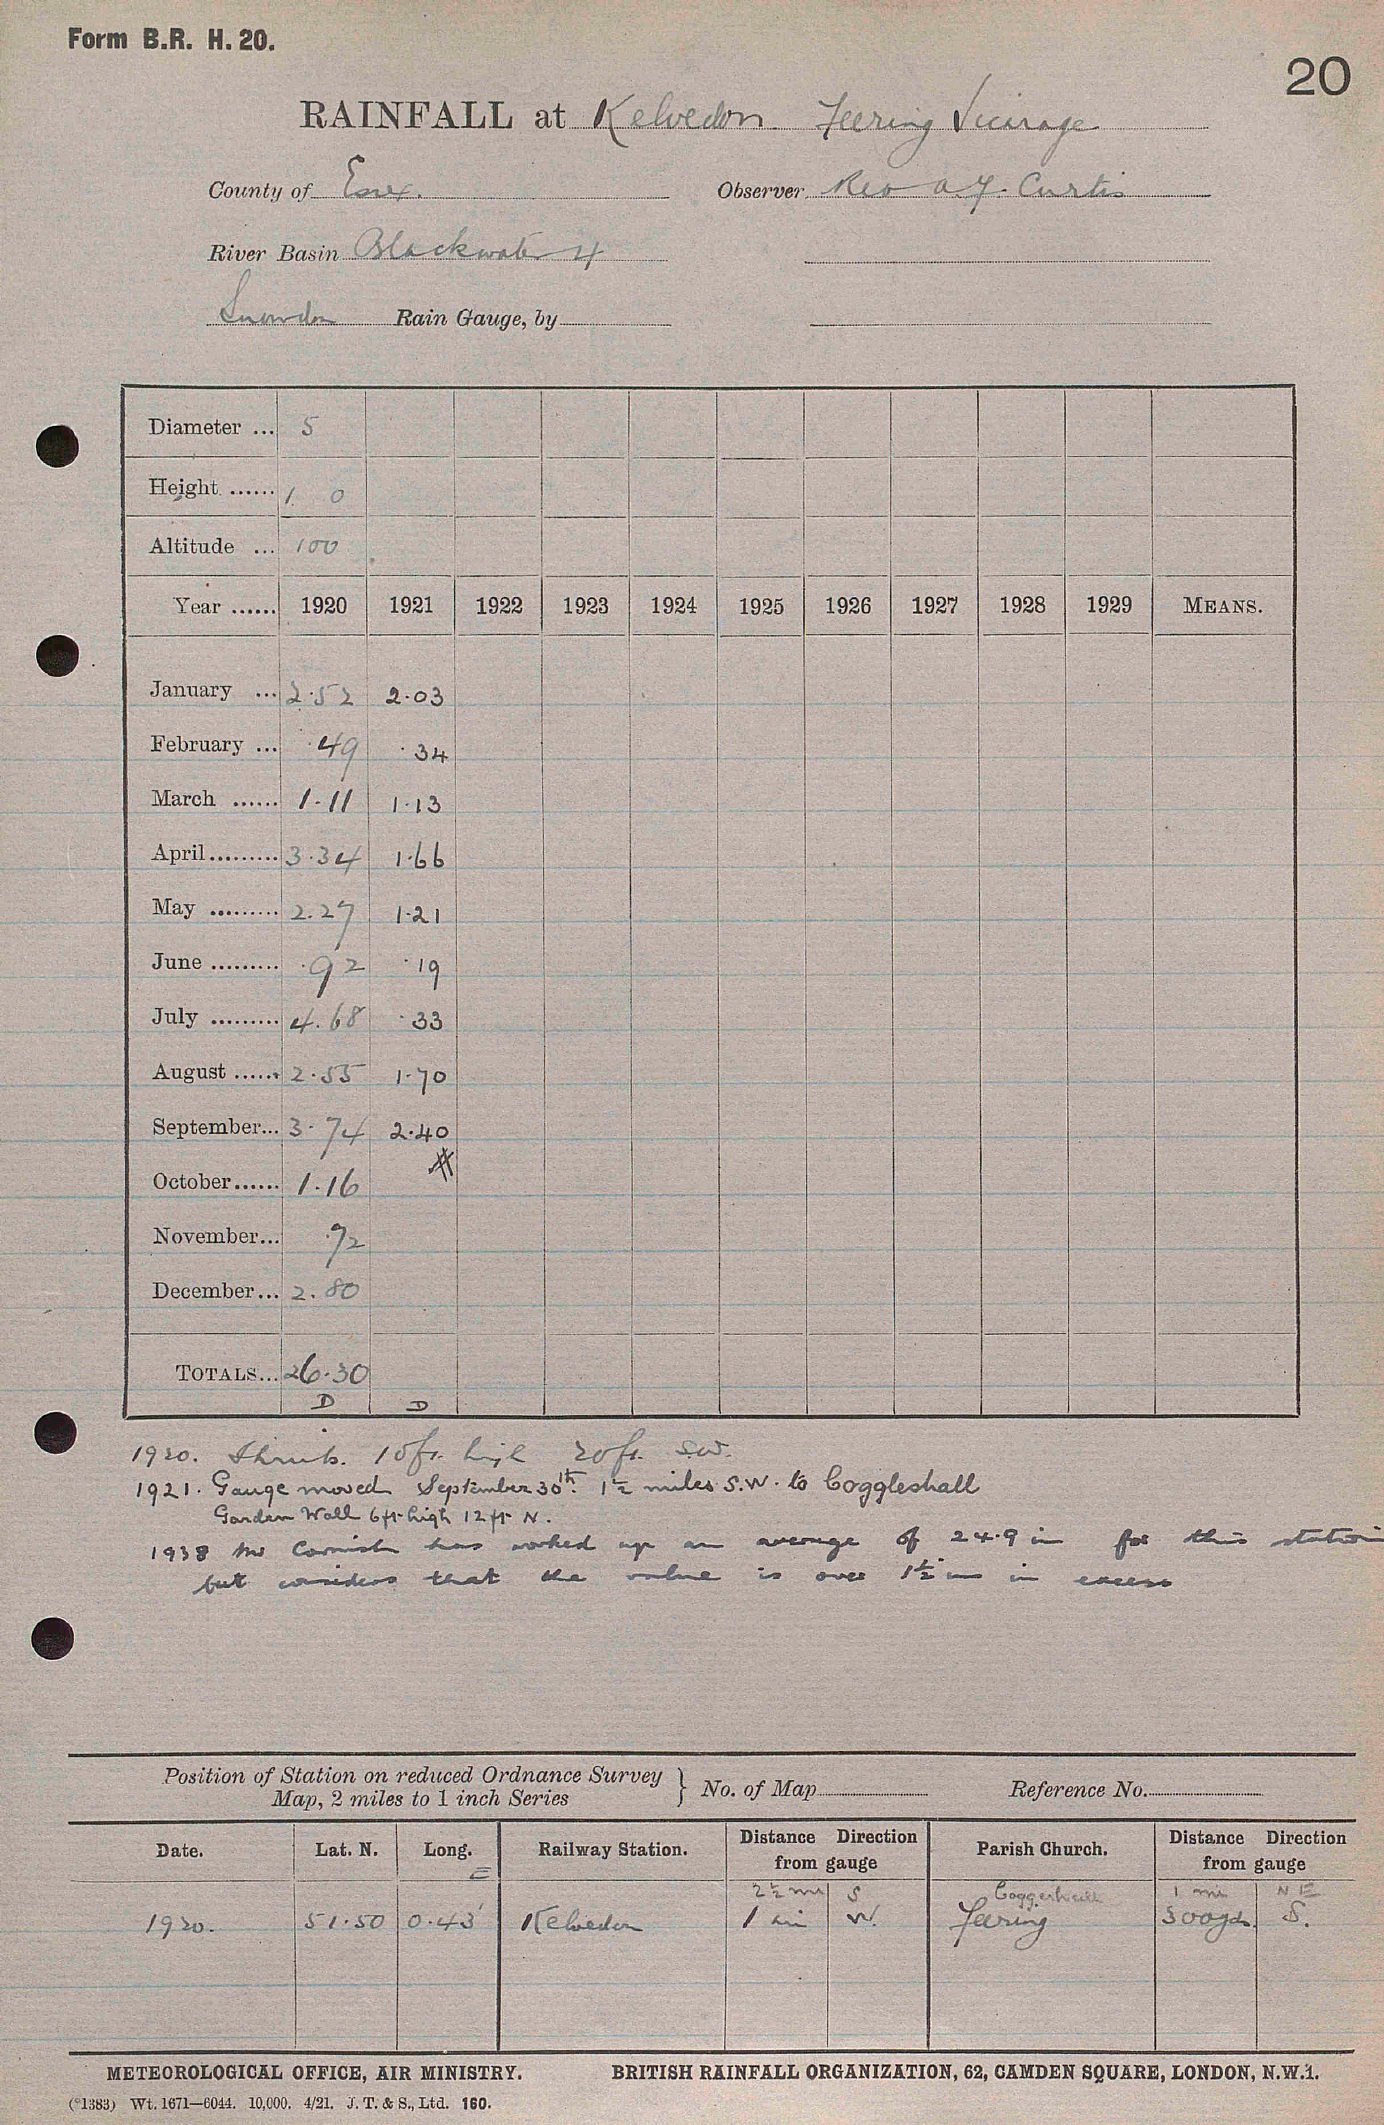 Form B.R. H. 20.
20
RAINFALL at Kelvedon Feering Vicarage
County of Essex. Observer Rev A.F. Curtis
River Basin Blackwater 4
Snowdon Rain Gauge, by
Diameter ... 5
Height ...... 1 0
Altitude ... 100
Year ...... 1920 1921 1922 1923 1924 1925 1926 1927 1928 1929 MEANS.
January ... 2.52 2.03
February ... .49 .34
March ...... 1.11 1.13
April ......... 3.34 1.66
May ......... 2.27 1.21
June ......... .92 .19
July ......... 4.68 .33
August ...... 2.55 1.70
September... 3.74 2.40
#
October...... 1.16
November... .72
December... 2.80
TOTALS... 26.30
D D
1920. Shrub. 10ft. high 20ft. S.W.
1921. Gauge moved September 30th. 1½ miles S.W. to Coggleshall
Garden Wall 6ft high 12ft N.
1938 Mr Cornish has worked up an average of 24.9 in for this station
but considers that the value is over 1½ ins in excess
Position of Station on reduced Ordnance Survey Map, 2 miles to 1 inch Series } No. of Map Reference No.
Date. Lat. N. Long. E Railway Station. Distance Direction from gauge Parish Church. Distance Direction from gauge
2½ mi S Coggeshall 1 mi NE
1920. 51.50 0.43' Kelvedon 1 mi W. Feering 300yds. S.
METEOROLOGICAL OFFICE, AIR MINISTRY. BRITISH RAINFALL ORGANIZATION, 62, CAMDEN SQUARE, LONDON, N.W.1.
(*1383) Wt. 1671—6044. 10,000. 4/21. J. T. & S., Ltd. 160.